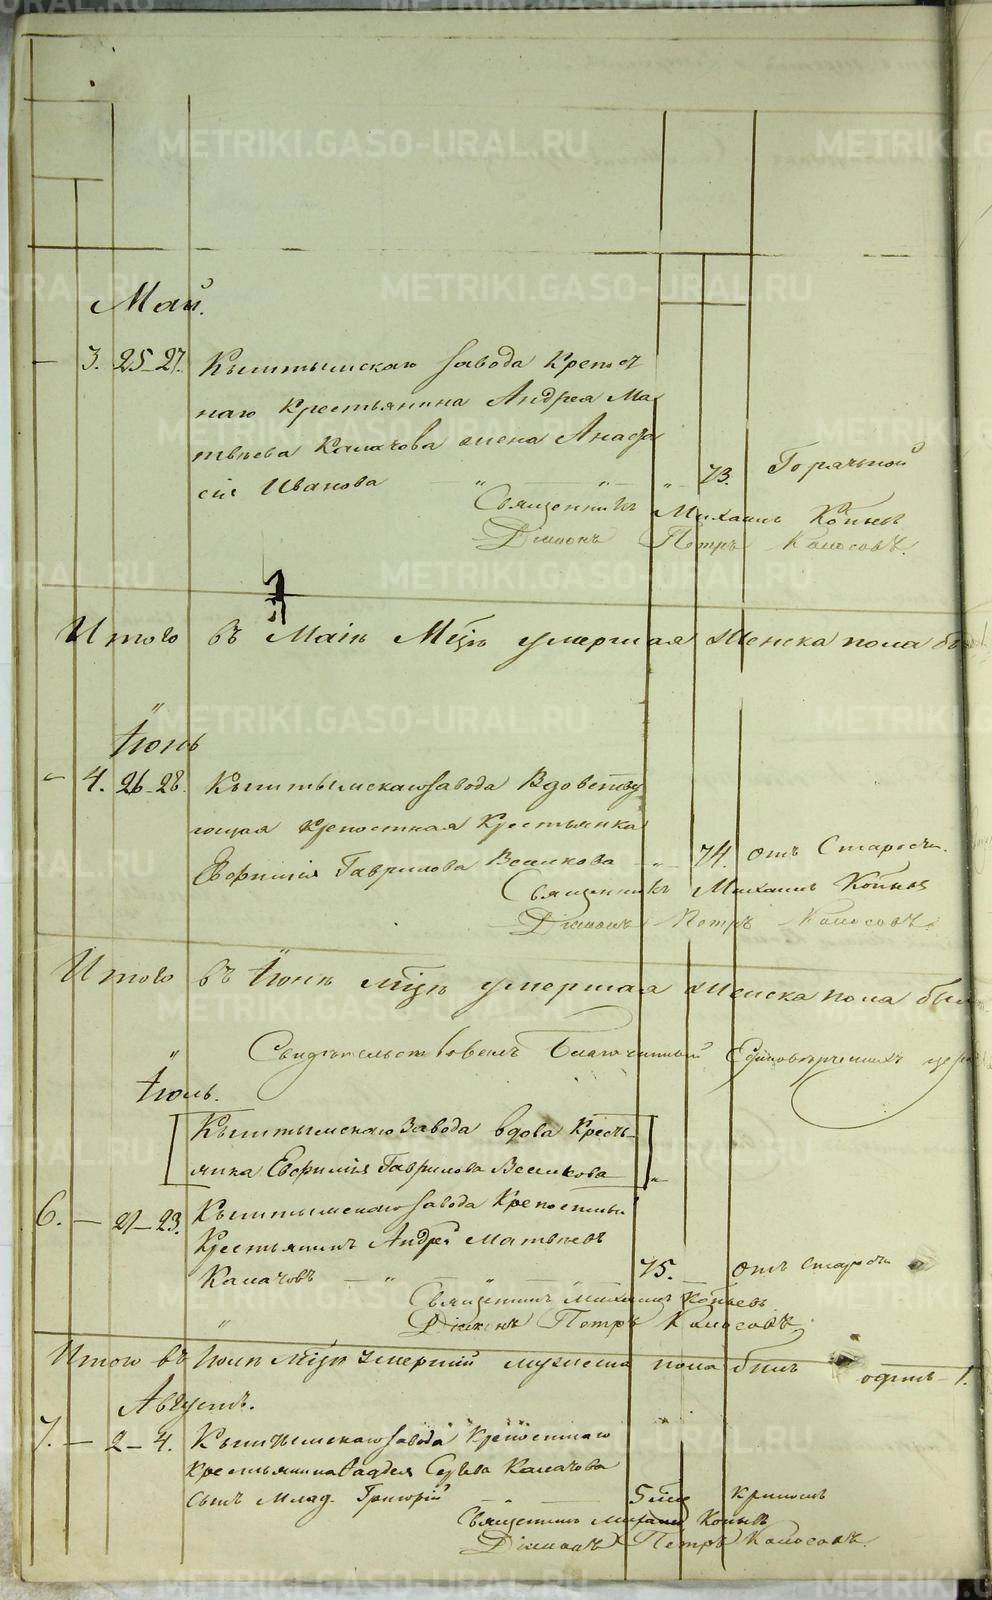 Май.
3. 25-27. Кыштымскаго Завода Крепост
наго Крестьянина Андрея Ма
твѣева Калачова жена Анаста
сіѣ Иванова „ — „ — „ 73. Горячьной
Священникъ Михаилъ Копьев
Діаконъ Петръ Колосовъ.
Итого въ Маіѣ Мцѣ умершая Женска пола бы
Іюнь
4. 26-28. Кыштымскаго Завода Вдовству
ющая крепостная Крестьянка
Евфимія Гаврилова Великова — „ — 74. отъ Старости.
Священникъ Михаилъ Копьев
Діаконъ Петръ Колосовъ.
Итого въ Іюнѣ мцѣ умершая Женска пола был
Свидѣтельствовалъ Благочинный Единовѣрческихъ цер
Іюль.
Кыштымскаго Завода вдова Кресть-
янка Евфимія Гаврилова Великова
6. — 21-23. Кыштымскаго Завода Крепостный
Крестьянинъ Андрей Матвѣевъ
Калачовъ — „ 75. отъ старости
Священникъ Михаилъ Копьевъ
Діаконъ Петръ Колосовъ.
Итого въ Іюлѣ Мцѣ Умершій мужеска пола былъ одинъ - 1.
Августъ.
7. — 2-4. Кыштымскаго Завода Крепостнаго
Крестьянина Фаддея Калачова
сынъ Млад. Григорій 5 Криком
Священникъ Михаил Копьев
Діаконъ Петръ Колосовъ.
METRIKI.GASO-URAL.RU